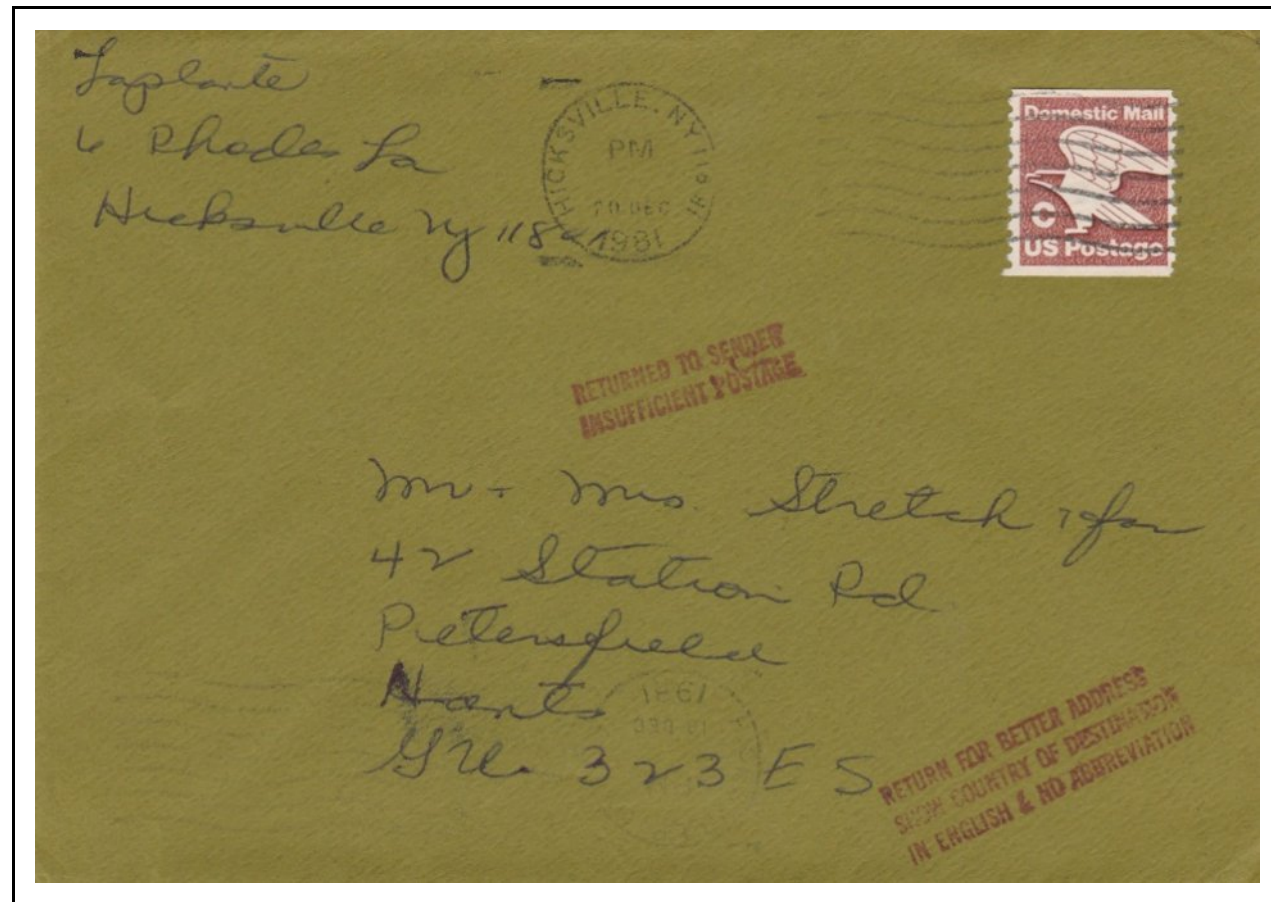 Laplante
6 Rhodes La
Hicksville Ny 118
HICKSVILLE, NY 118
PM
20 DEC
1981
Domestic Mail
C
US Postage
RETURNED TO SENDER
INSUFFICIENT POSTAGE
Mr - Mrs. Stretch
42 Station Rd
Petersfield
Hants
GU. 323 ES
1981
DEC
RETURN FOR BETTER ADDRESS
SHOW COUNTRY OF DESTINATION
IN ENGLISH & NO ABBREVIATION